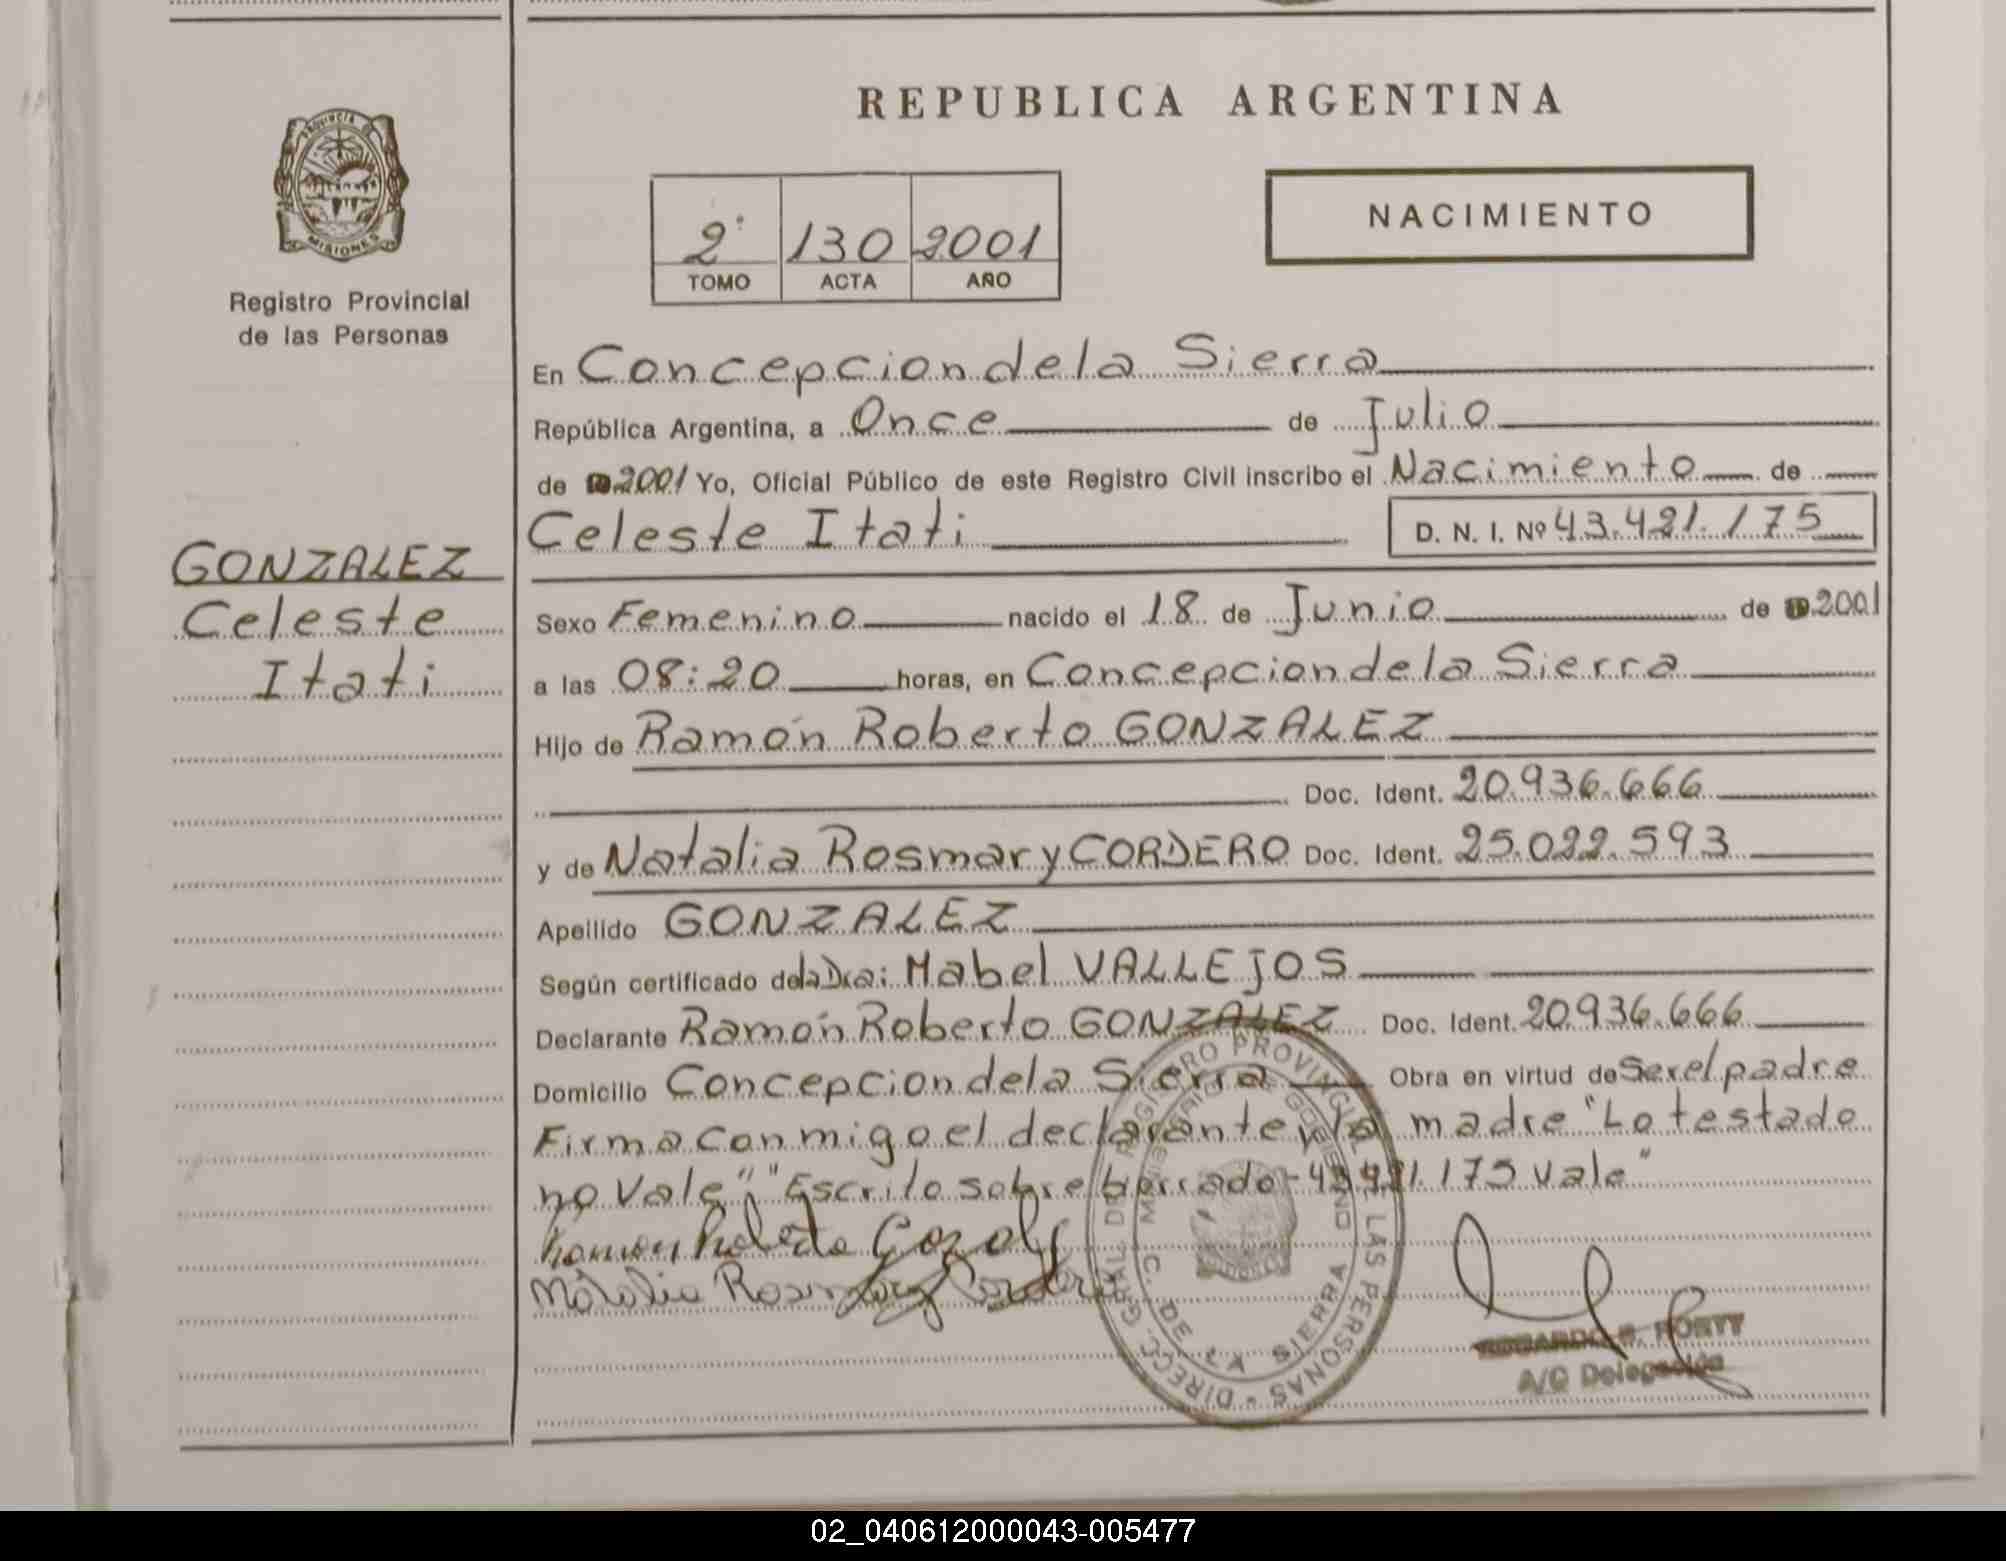 REPUBLICA ARGENTINA
PROVINCIA DE
MISIONES
Registro Provincial
de las Personas
2º 130 2001
TOMO ACTA AÑO
NACIMIENTO
GONZALEZ
Celeste
Itati
En Concepcion de la Sierra
República Argentina, a Once de Julio
de 2001 Yo, Oficial Público de este Registro Civil inscribo el Nacimiento de
Celeste Itati D. N. I. Nº 43.421.175
Sexo Femenino nacido el 18 de Junio de 2001
a las 08:20 horas, en Concepcion de la Sierra
Hijo de Ramón Roberto GONZALEZ
Doc. Ident. 20.936.666
y de Natalia Rosmary CORDERO Doc. Ident. 25.022.593
Apellido GONZALEZ
Según certificado de la Dra: Mabel VALLEJOS
Declarante Ramón Roberto GONZALEZ Doc. Ident. 20.936.666
Domicilio Concepcion de la Sierra Obra en virtud de Ser el padre
Firma con migo el declarante y la madre "Lo testado
no Vale", "Escrito sobre borrado - 43.421.175 Vale"
Ramon Roberto
Natalia Rosmary Cordero
DIRECC. GRAL. DE REGISTRO PROVINCIAL DE LAS PERSONAS
MINISTERIO DE GOBIERNO
C. DE LA SIERRA
A/C Delegación
02_040612000043-005477